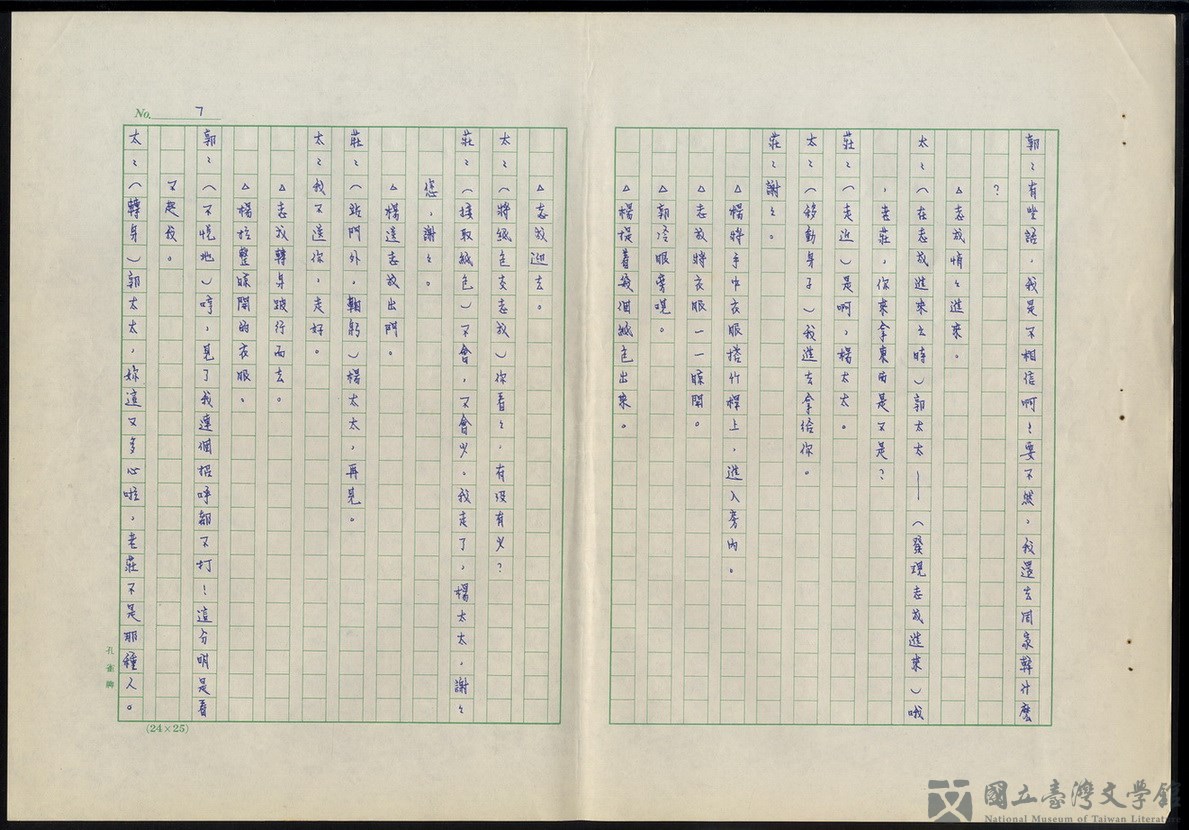 郭：有唑話，我是不相信啊！要不然，我還去周家幹什麼
？
△志成悄々進來。
太：（在志成進來之時）郭太太——（發現志成進來）哦
，老莊，你來拿東西是不是？
莊：（走近）是啊，楊太太。
太：（移動身子）我進去拿給你。
莊：謝々。
△楊將手中衣服搭竹桿上，進入旁內。
△志成將衣服一一晾開。
△郭冷眼旁觀。
△楊提着幾個紙包出來。
No. 7
△志成迎去。
太：（將紙包交志成）你看々，有沒有少？
莊：（接取紙包）不會，不會少。我走了，楊太太，謝々
您，謝々。
△楊送志成出門。
莊：（站門外，鞠躬）楊太太，再見。
太：我不送你，走好。
△志成轉身跛行而去。
△楊拉整晾開的衣服。
郭：（不悅地）哼，見了我連個招呼都不打！這分明是看
不起我。
太：（轉身）郭太太，妳這又多心啦，老莊不是那種人。
孔雀牌
(24×25)
國立臺灣文學館
National Museum of Taiwan Literature